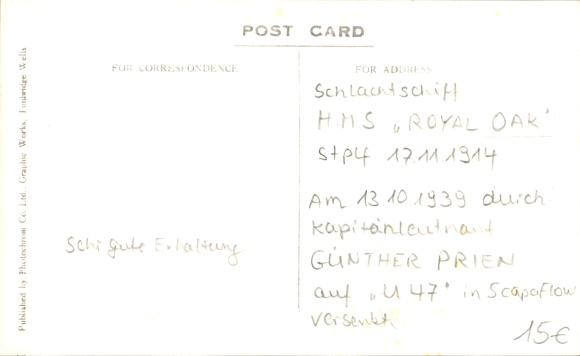 POST CARD
FOR CORRESPONDENCE
FOR ADDRESS
Schlachtschiff
HMS „ROYAL OAK"
Stpl 17.11.1914
Am 13.10.1939 durch
Kapitänleutnant
GÜNTHER PRIEN
auf „U 47" in Scapaflow
versenkt
15€
Sehr gute Erhaltung
Published by Photochrom Co. Ltd., Graphic Works, Tunbridge Wells